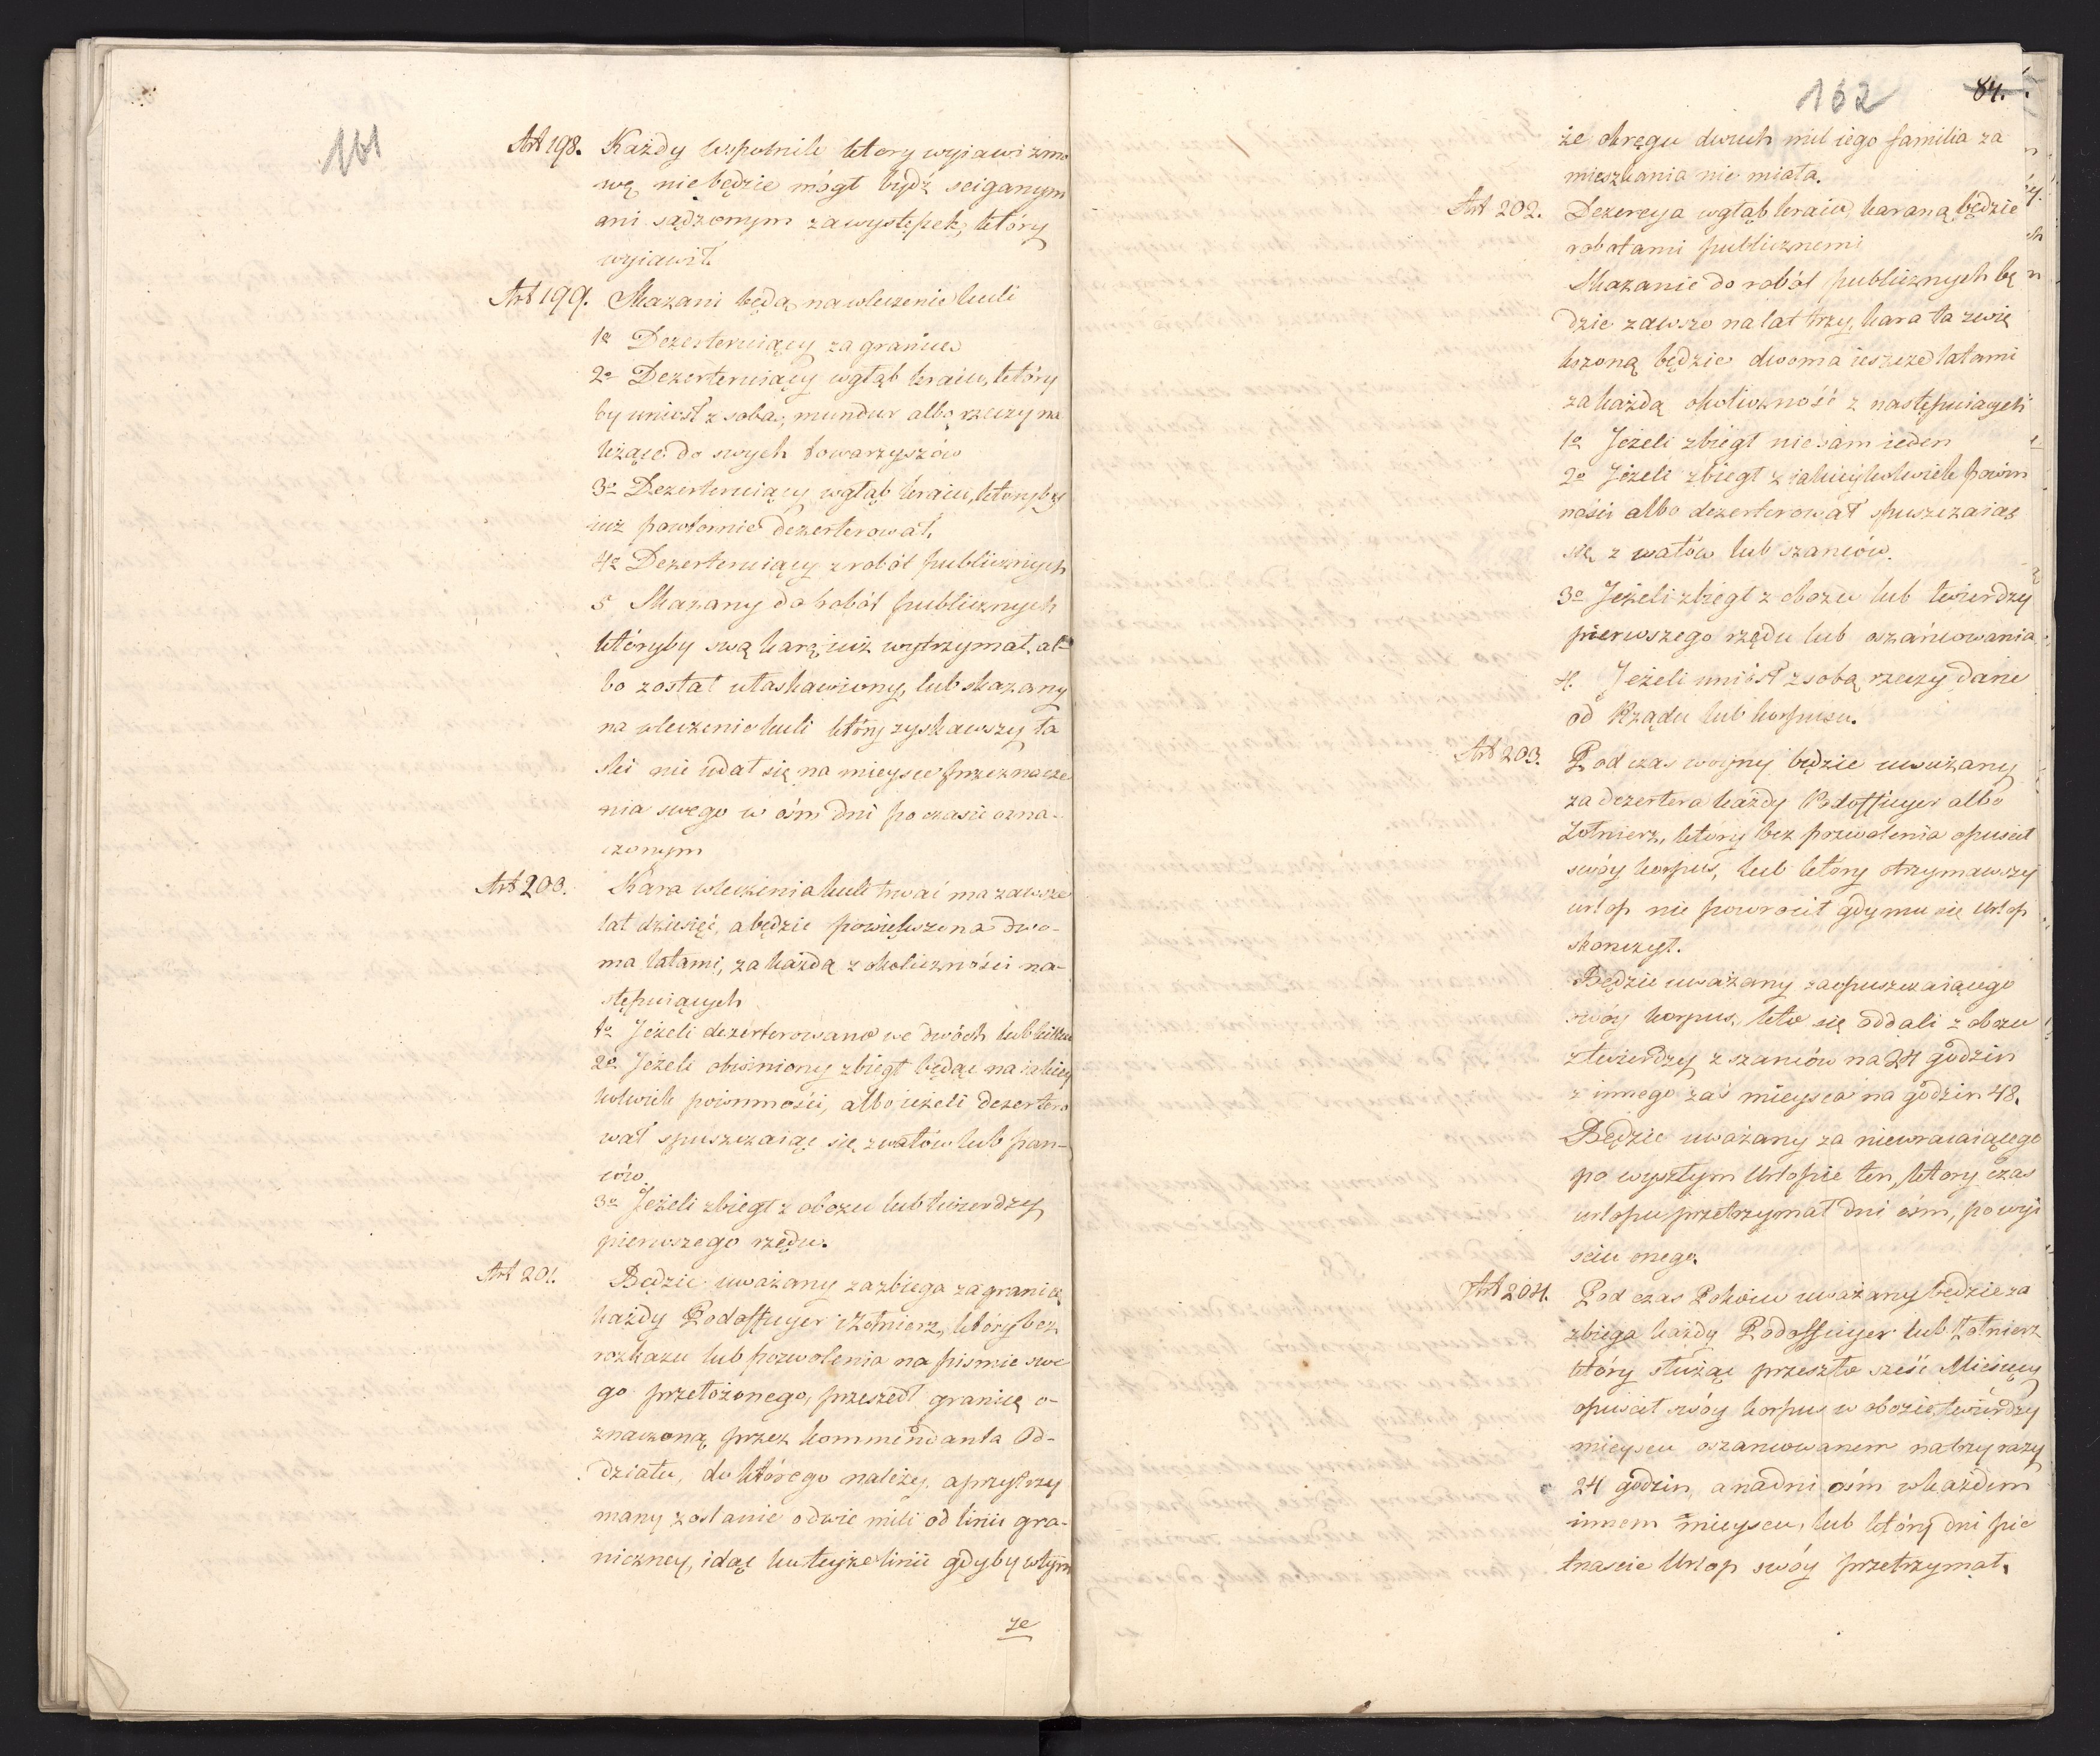 161
Art 198. Każdy wspolnik ktory wyiawi zmo
wę, nie będzie mógł bydź sciganym
ani sądzonym za występek, który
wyiawił.
Art 199. Skazani będą na wleczenie kuli
1o Dezerteruiący za granice
2o Dezerteruiący w głąb kraiu, który
by uniosł z sobą, mundur albo rzeczy na
leżące do swych towarzyszów
3o Dezerteruiący w głąb kraiu, ktoryby
iuż powtornie dezerterował.
4o Dezerteruiący z robót publicznych
5 Skazany do robót publicznych
któryby swą karę iuż wytrzymał, al-
bo został ułaskawiony, lub skazany
na wleczenie kuli który zyskawszy ła
ski nie udał się na mieysce przeznacze
nia swego w ośm dni po czasie ozna-
czonym
Art 200. Kara wleczenia kuli trwać ma zawsze
lat dziesięć, a będzie powiększona dwo-
ma latami, za każdą z okoliczności na-
stępuiących
1o Jeżeli dezerterowano we dwóch lub kilku
2o Jeżeli obwiniony zbiegł będąc na iakiey
kolwiek powinności, albo ieżeli dezertero
wał spuszczaiąc się z wałów lub pan-
ców.
3o Jeżeli zbiegł z obozu lub twierdzy
pierwszego rzędu.
Art 201. Będzie uważany za zbiega za granicę
każdy Podofficyer i Żołnierz, który bez
rozkazu lub pozwolenia na pismie swe
go przełożonego, przeszedł granicę o-
znaczoną przez kommendanta Od-
działu, do którego należy, a przytrzy
many zostanie o dwie mili od linii gra-
niczney, idąc ku teyże linii gdyby w tym
ze
162 84.
że okręgu dwuch mil iego familia za
mieszkania nie miała.
Art 202. Dezercya w głąb kraiu, karaną będzie
robotami publicznemi
Skazanie do robót publicznych bę
dzie zawsze na lat trzy, kara ta zwię
kszoną będzie dwoma ieszcze latami
za każdą okoliczność z następuiących
1o Jeżeli zbiegł nie sam ieden
2o Jeżeli zbiegł z iakieykolwiek powin
ności albo dezerterował spuszczaiąc
się z wałów lub szanców.
3o Jeżeli zbiegł z obozu lub twierdzy
pierwszego rzędu lub oszańcowania
4. Jeżeli uniosł z sobą rzeczy dane
od Rządu lub korpusu.
Art 203. Pod czas woyny będzie uważany
za dezertera każdy Podofficyer albo
Żołnierz, który bez pozwolenia opuścił
swóy korpus, lub który otrzymawszy
urlop nie powrocił gdy mu się Urlop
skonczył.
Będzie uważany za opuszczaiącego
swóy korpus, kto się oddali z obozu
z twierdzy z szanców na 24 godzin
z innego zaś mieysca na godzin 48.
Będzie uważany za niewracaiącego
po wyszłym Urlopie ten, ktory czas
urlopu przetrzymał dni ośm, po wyi
sciu onego.
Art 204. Pod czas Pokoiu uważany będzie za
zbiega każdy Podofficyer lub Żołnierz
który służąc przeszło sześć Miesięcy
opuścił swóy korpus w obozie, twierdzy
mieyscu oszancowanem na trzy razy
24 godzin, a na dni ośm w każdem
innem mieyscu, lub który dni pię
tnascie Urlop swóy przetrzymał.